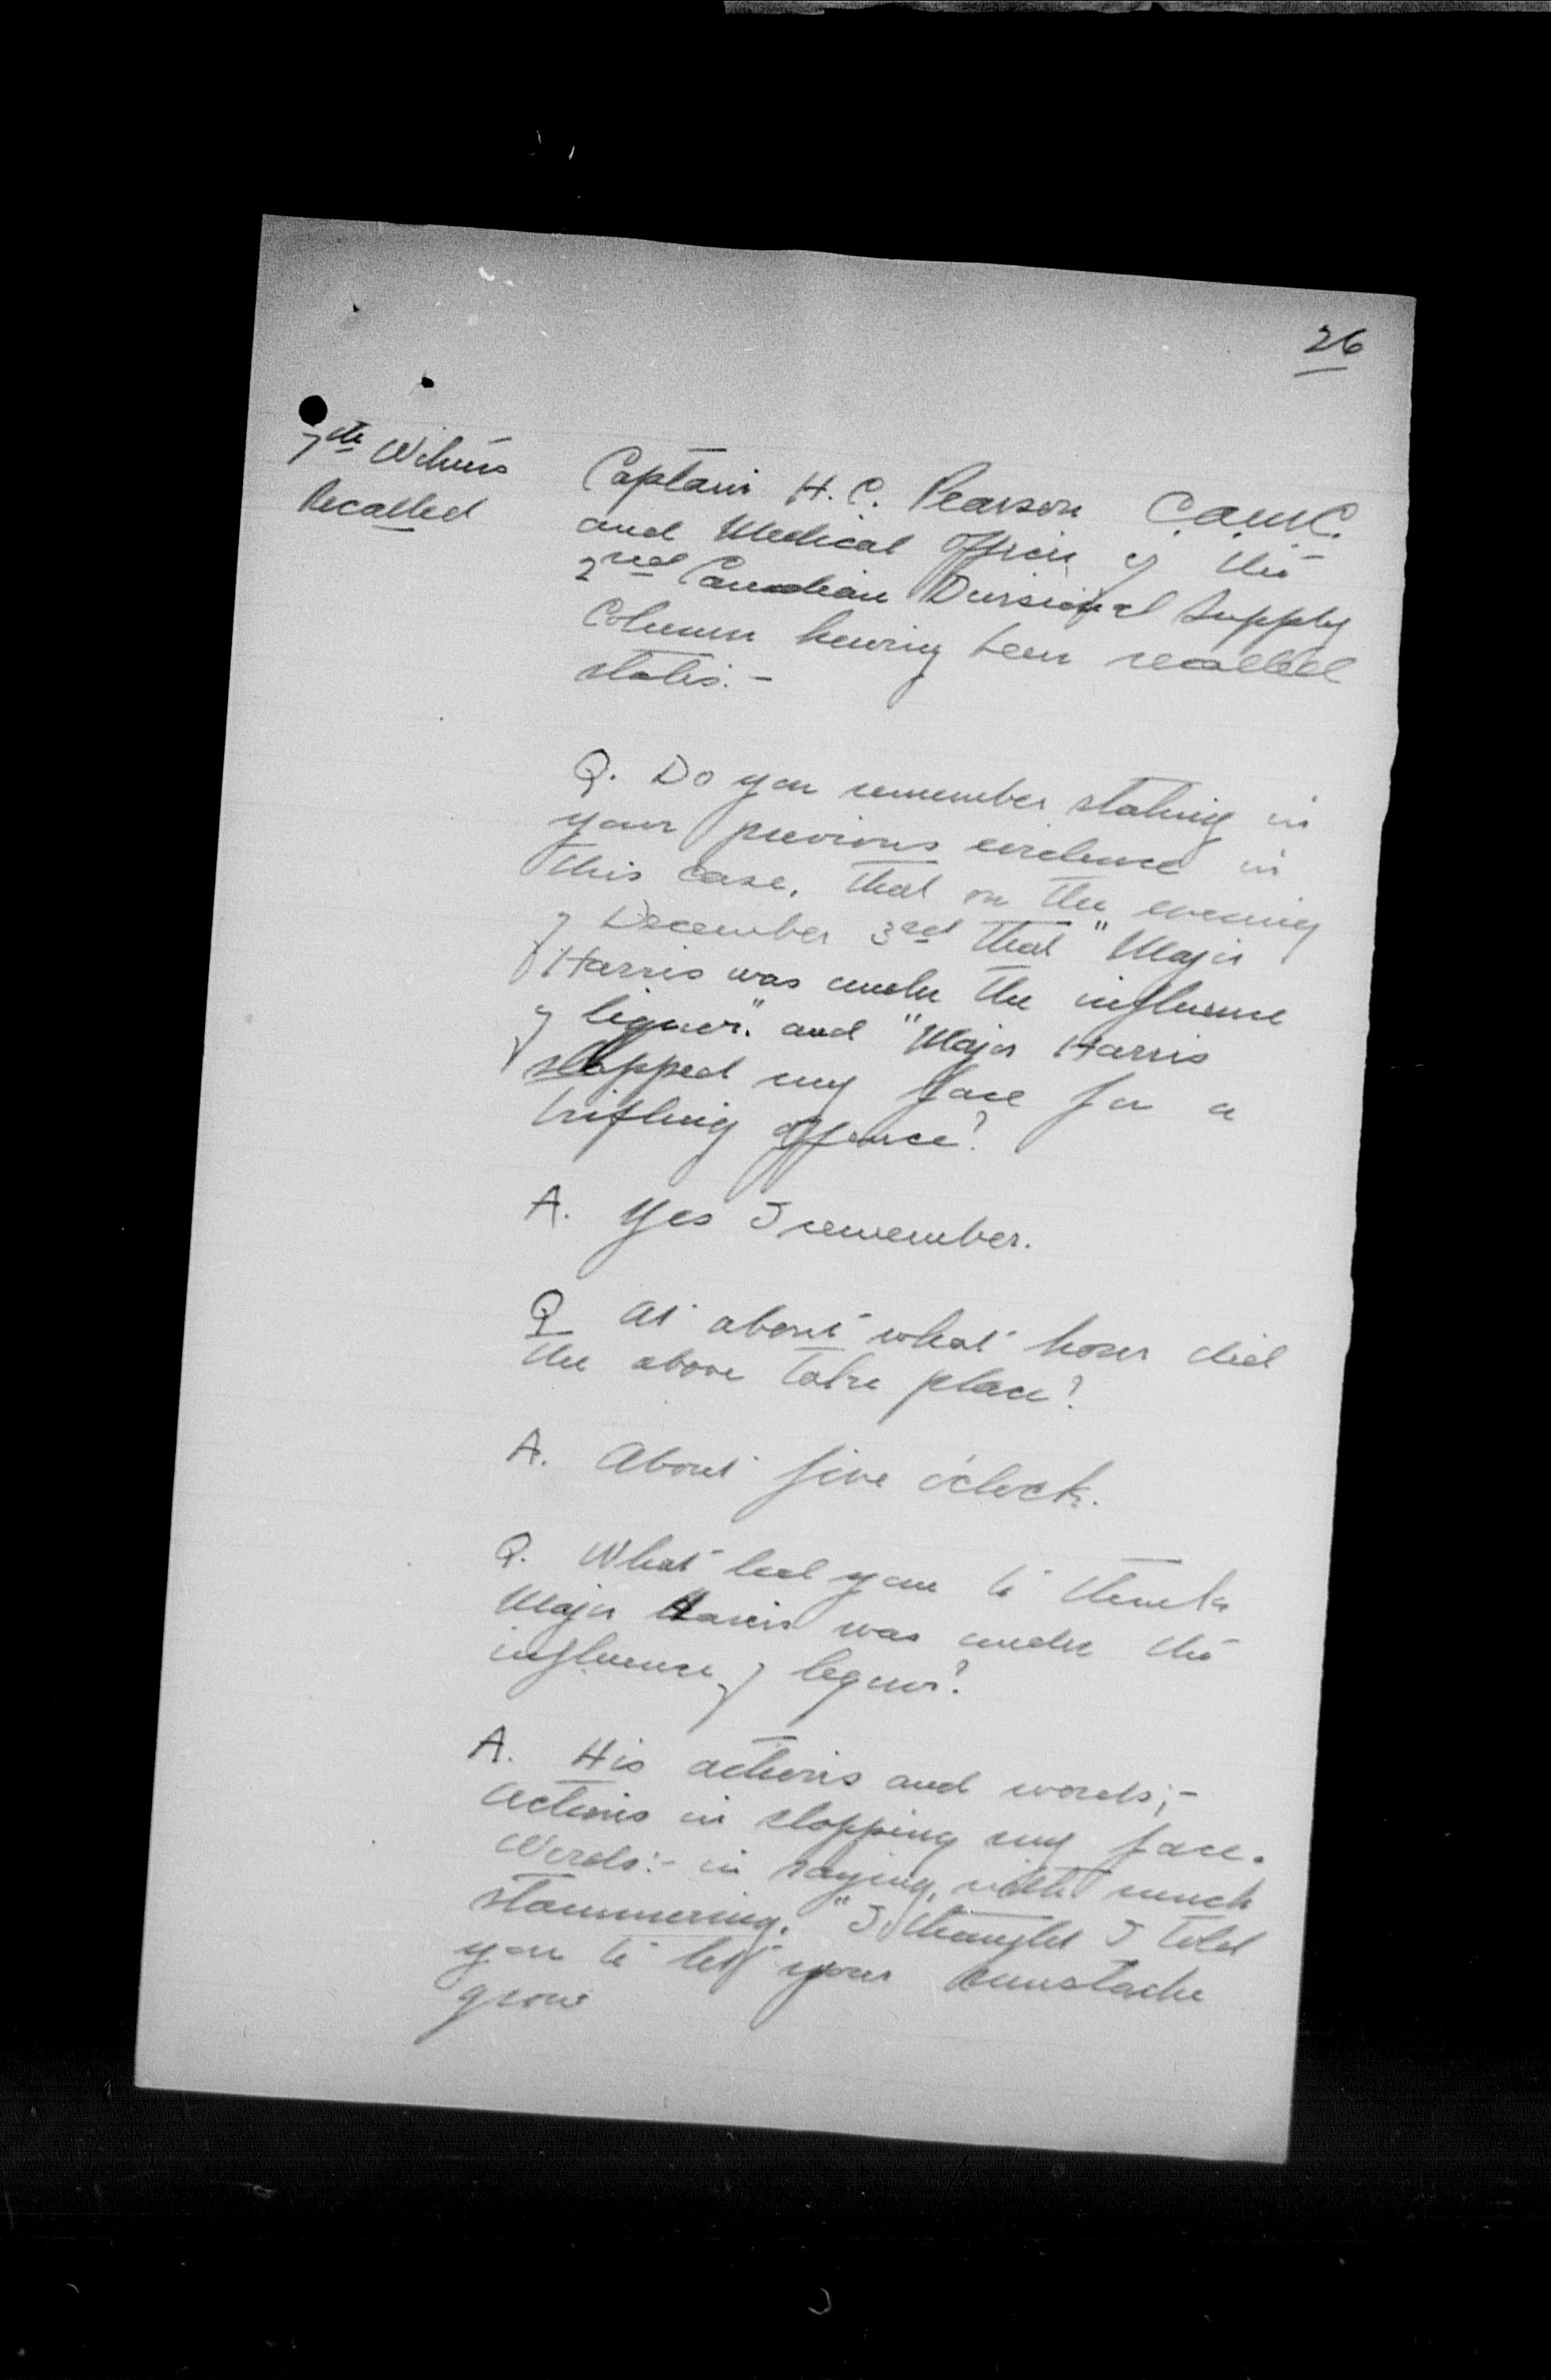 26
7th Witness
Recalled
Captain H. C. Pearson C.A.M.C.
and Medical Officer of the
2nd Canadian Divisional Supply
Column having been recalled
states:-
Q. Do you remember stating in
your previous evidence in
this case, that on the evening
of December 3rd that "Major
Harris was under the influence
of liquor." and "Major Harris
slapped my face for a
trifling offence?
A. Yes I remember.
Q At about what hour did
the above take place?
A. About five o'clock.
Q. What led you to think
Major Harris was under the
influence of liquor?
A. His actions and words;-
Actions in slapping my face.
Words:- in saying, with much
stammering. "I thought I told
you to let your mustache
grow